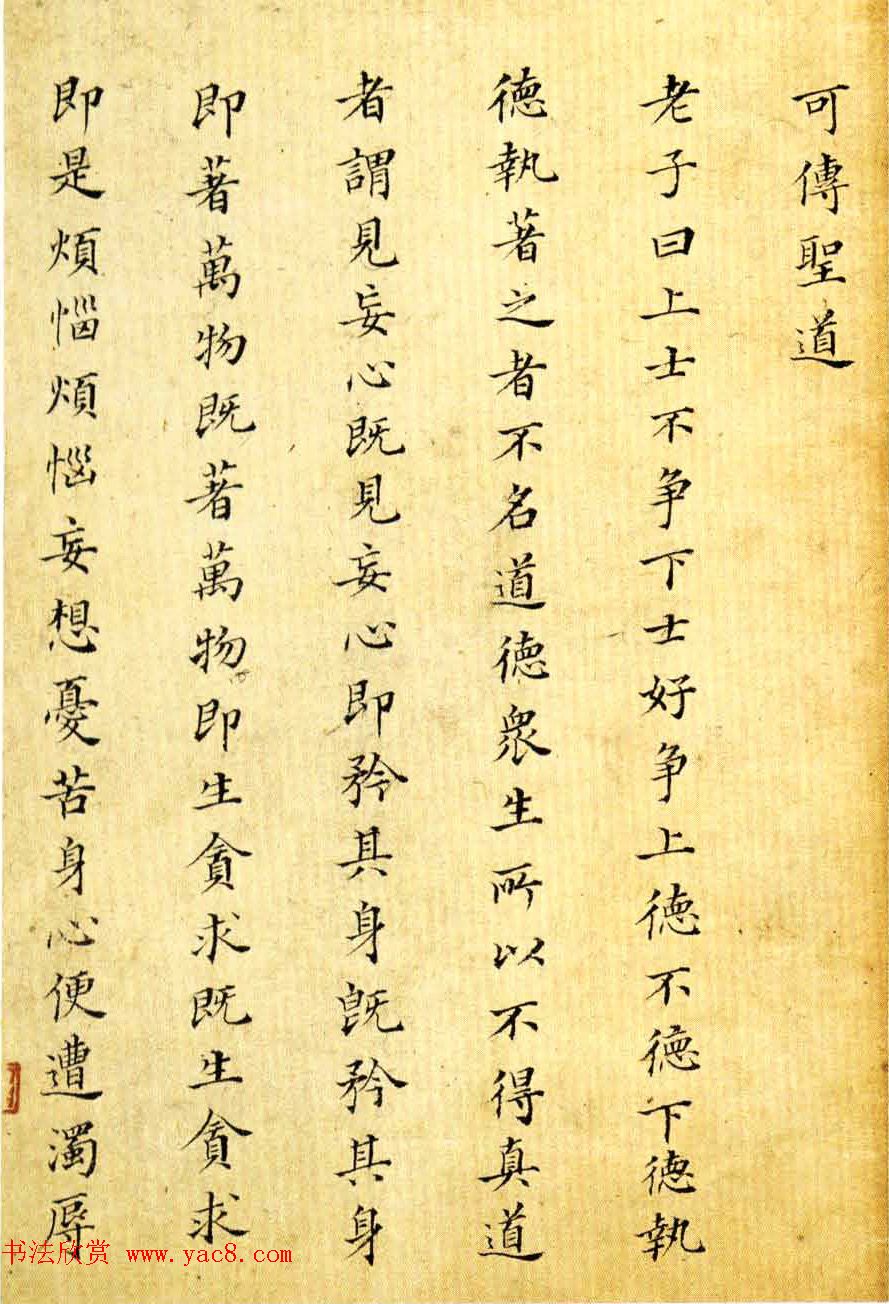 可傳聖道
老子曰上士不争下士好争上徳不徳下徳執
徳執著之者不名道徳衆生所以不得真道
者謂見妄心既見妄心即矜其身既矜其身
即著萬物既著萬物即生貪求既生貪求
即是煩惱煩惱妄想憂苦身心便遭濁辱
书法欣赏 www.yac8.com